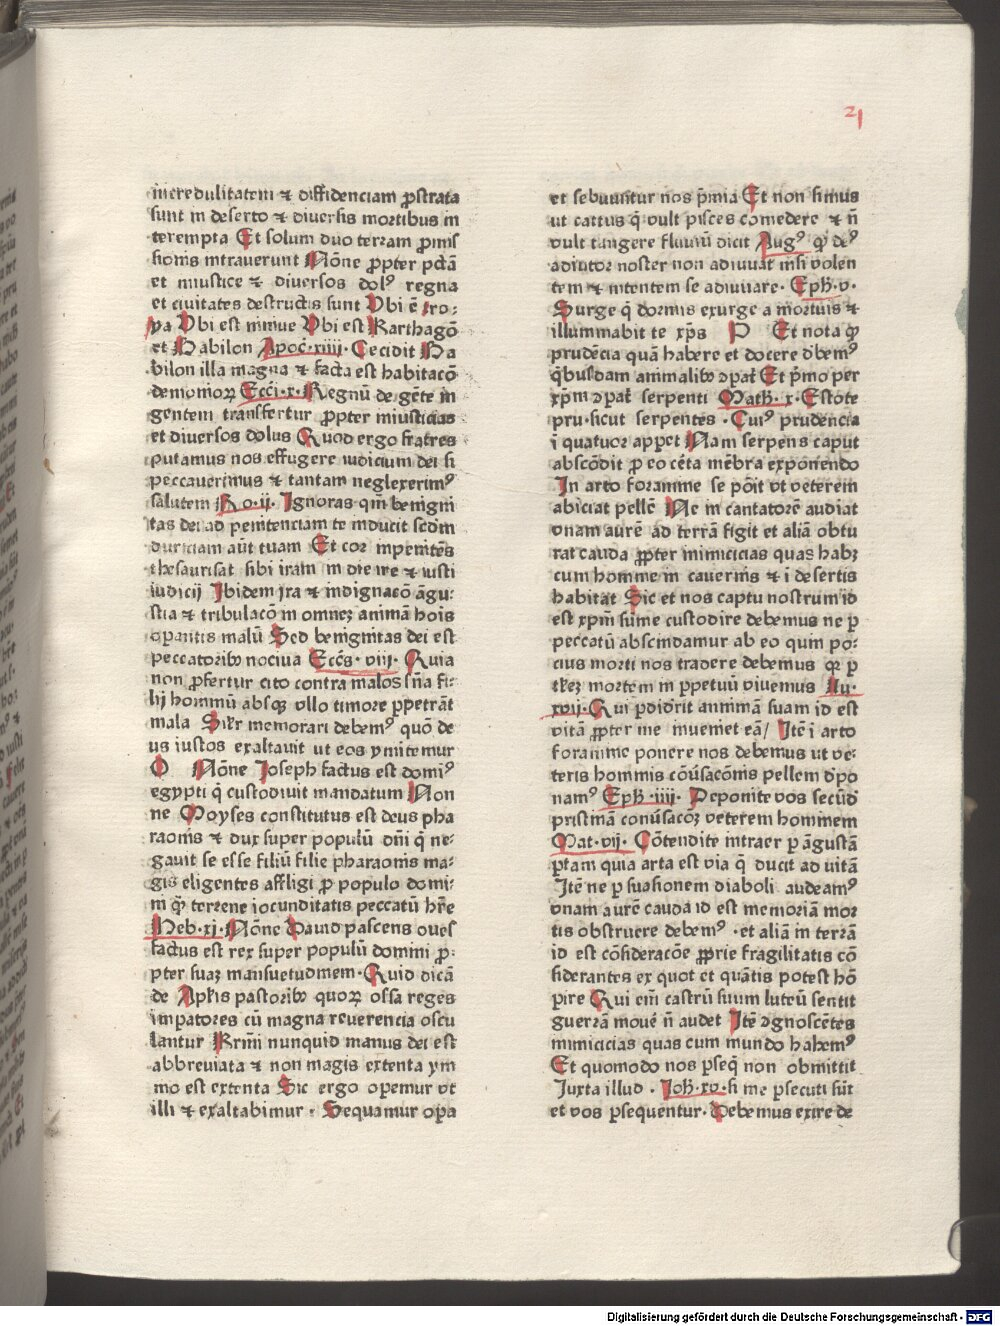 21
incredulitatem ⁊ diffidenciam ꝓstrata
sunt in deserto ⁊ diuersis mortibus in
terempta Et solum duo terram ꝓmis
sionis intrauerunt Nōne ꝓpter pctā
et iniusticie ⁊ diuersos dolꝰ regna
et ciuitates destructis sunt Vbi ē tro⸗
ya Vbi est niniue Vbi est Karthagō
et Babilon Apoc̄·xiiii·Cecidit Ba
bilon illa magna ⁊ facta est habitacō
demonioꝝ Ecci·x·Regnū de gēte in
gentem transfertur ꝓpter iniusticias
et diuersos dolus Quod ergo fratres
putamus nos effugere iudicium dei si
peccauerimus ⁊ tantam neglexerimꝰ
salutem Ro·ii· Ignoras qm̄ benigni
tas dei ad penitenciam te inducit scdm̄
duriciam aūt tuam Et cor inpenitēs
thesaurisat sibi iram in die ire ⁊ iusti
iudicij Ibidem Ira ⁊ indignacō āgu⸗
stia ⁊ tribulacō in omneꝫ animā hois
oꝑantis malū Sed benignitas dei est
peccatoribꝰ nociua Ecc̄s·viii·Quia
non ꝓfertur cito contra malos sn̄a fi⸗
lij hominū absqꝫ vllo timore ꝑpetrāt
mala Silr memorari debemꝰ quō de
us iustos exaltauit ut eos ymitemur
O Nōne Ioseph factus est domiꝰ
egypti q̄ custodiuit mandatum Non
ne Moyses constitutus est deus pha
raonis ⁊ dux super populū dn̄i q̄ ne⸗
gauit se esse filiū filie pharaonis ma⸗
gis eligentes affligi ꝓ populo domi⸗
ni q̄ꝫ terrene iocunditatis peccatū hr̄e
Heb·xi·Nōne Dauid pascens oues
factus est rex super populū domini ꝓ⸗
pter suaꝫ mansuetudinem·Quid dicā
de Apl̄is pastoribꝰ quoꝝ ossa reges
impatores cū magna reuerencia oscu
lantur Krm̄i nunquid manus dei est
abbreuiata ⁊ non magis extenta ym
mo est extenta Sic ergo oꝑemur vt
illi ⁊ exaltabimur·Sequamur oꝑa
et sebuuntur nos p̄mia Et non simus
ut cattus q̄ vult pisces comedere ⁊ n̄
vult tangere fluuiū dicit Augꝰ qꝫ deꝰ
adiutor noster non adiuuat nisi volen
tem ⁊ nitentem se adiuuare·Eph·v·
Surge q̄ dormis exurge a mortuis ⁊
illuminabit te xp̄s P Et nota qꝫ
prudēcia quā habere et docere d̄bemꝰ
q̄busdam animalibꝰ ꝯpat̄ Et p̄mo per
xp̄m ꝯpat̄ serpenti Math·x·Estote
pru·sicut serpentes·Cuiꝰ prudencia
ī quatuor appet̄ Nam serpens caput
abscōdit ꝓ eo cēta mēbra exponendo
In arto foramine se pōit vt veterem
abiciat pellē Ne in cantatorē audiat
vnam aurē ad terrā figit et aliā obtu
rat cauda ꝓpter inimicicias quas habꝫ
cum homine in cauernis ⁊ i desertis
habitat Sic et nos captu nostrum id
est xpm̄ sūme custodire debemus ne ꝑ
peccatū abscindamur ab eo quin po⸗
cius morti nos tradere debemus qꝛ ꝑ
tkeꝫ mortem in ꝑpetuū viuemus Lu·
xvij·Qui ꝑdiderit animmā suam id est
vitā ꝓpter me inueniet eā/ Itē i arto
foramine ponere nos debemus ut ve⸗
teris hominis cōūsacōnis pellem d̄po
namꝰ Eph·iiii·Deponite vos secūd
pristinā conūsacoꝫ veterem hominem
Mat·vij·Cōtendite intraer ꝑ āgustā
ꝑtam quia arta est via q̄ ducit ad vitā
Itē ne ꝑ suasionem diaboli audeamꝰ
vnam aurē cauda id est memoriā mor
tis obstruere debemꝰ·et aliā in terrā
id est cōsideracōe ꝓprie fragilitatis cō
siderantes ex quot et quātis potest hō
pire Qui em̄ castrū suum luteū sentit
guerrā mouē n̄ audet Itē ꝯgnoscētes
inimicicias quas cum mundo habemꝰ
Et quomodo nos ꝑseq̄ non obmittit
Iuxta illud·Joh·xv·si me ꝑsecuti sūt
et vos ꝑsequentur·Debemus exire de
Digitalisierung gefördert durch die Deutsche Forschungsgemeinschaft - DFG